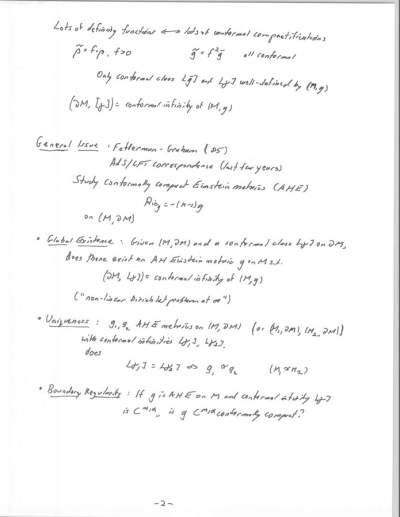 Lots of defining functions ⟷ lots of conformal compactifications
ρ̃ = f·ρ, f>0    g̃ = f²ḡ    all conformal
Only conformal class [ḡ] and [γ] well-defined by (M,g)
(∂M, [γ]) = conformal infinity of (M,g)
General Issue : Fefferman-Graham (85)
AdS/CFT correspondence (last few years)
Study conformally compact Einstein metrics (AHE)
Ric_g = -(n-1)g
on (M,∂M)
• Global Existence : Given (M,∂M) and a conformal class [γ] on ∂M,
does there exist an AH Einstein metric g on M s.t.
(∂M, [γ]) = conformal infinity of (M,g)
("non-linear Dirichlet problem at ∞")
• Uniqueness : g₁, g₂ AHE metrics on (M,∂M) (or (M₁,∂M), (M₂,∂M))
with conformal infinities [γ₁], [γ₂],
does
[γ₁] = [γ₂] ⇒ g₁ ≅ g₂    (M₁ ≅ M₂)
• Boundary Regularity : If g is AHE on M and conformal infinity [γ]
is C^{m,α}, is g C^{m,α} conformally compact?
-2-